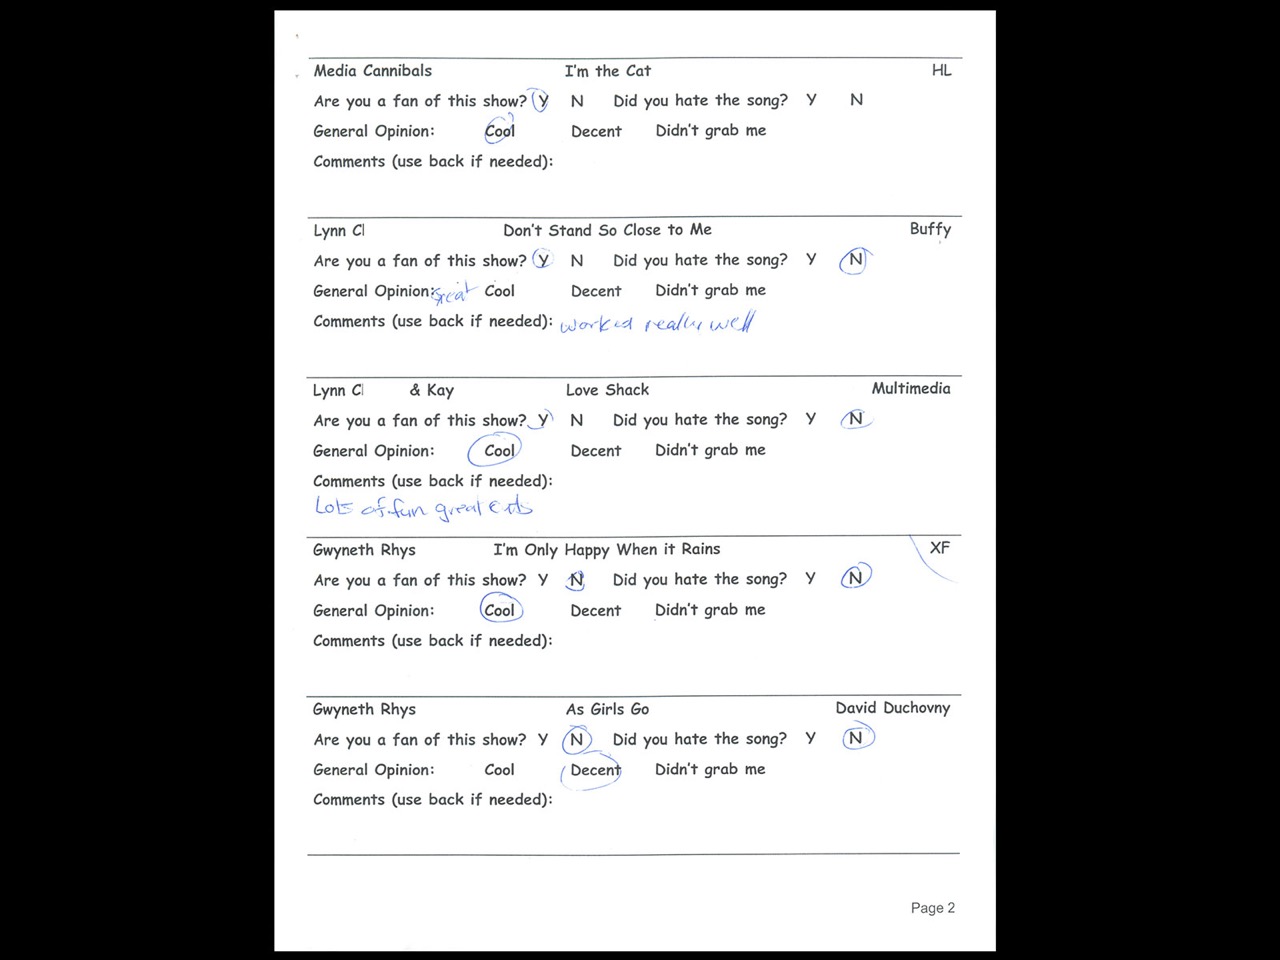 Media Cannibals I'm the Cat HL
Are you a fan of this show? Y N Did you hate the song? Y N
General Opinion: Cool Decent Didn't grab me
Comments (use back if needed):
Lynn C Don't Stand So Close to Me Buffy
Are you a fan of this show? Y N Did you hate the song? Y N
General Opinion: Great Cool Decent Didn't grab me
Comments (use back if needed): worked really well
Lynn C & Kay Love Shack Multimedia
Are you a fan of this show? Y N Did you hate the song? Y N
General Opinion: Cool Decent Didn't grab me
Comments (use back if needed):
Lots of fun great
Gwyneth Rhys I'm Only Happy When it Rains XF
Are you a fan of this show? Y N Did you hate the song? Y N
General Opinion: Cool Decent Didn't grab me
Comments (use back if needed):
Gwyneth Rhys As Girls Go David Duchovny
Are you a fan of this show? Y N Did you hate the song? Y N
General Opinion: Cool Decent Didn't grab me
Comments (use back if needed):
Page 2